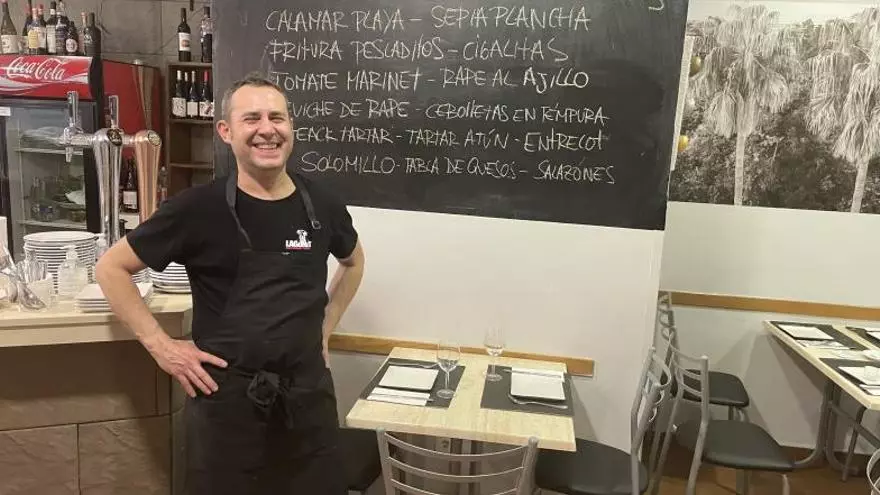 CALAMAR PLAYA - SEPIA PLANCHA
FRITURA PESCADITOS - CIGALITAS
TOMATE MARINET - RAPE AL AJILLO
VICHE DE RAPE - CEBOLLETAS EN TEMPURA
TEACK TARTAR - TARTAR ATÚN - ENTRECOT
SOLOMILLO - TABLA DE QUESOS - SALAZONES
Coca-Cola